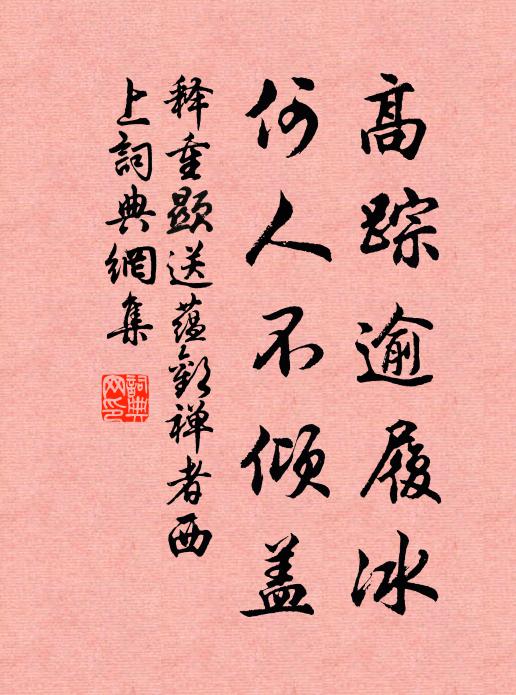 高踪逾履冰
何人不倾盖
释重顯送蕴觀禅者西
上詞典網集
詞典網印